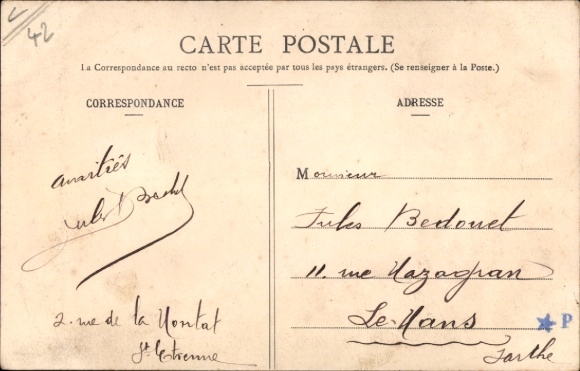 42
CARTE POSTALE
La Correspondance au recto n'est pas acceptée par tous les pays étrangers. (Se renseigner à la Poste.)
CORRESPONDANCE
amitiés
Jules
2. rue de la Montat
St Etienne
ADRESSE
Monsieur
Jules Bedouet
11. rue Mazagran
Le Mans
Sarthe
P